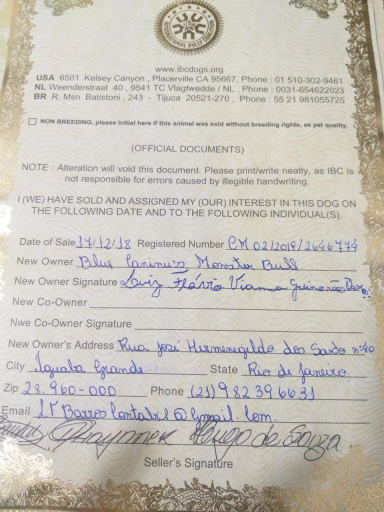 www.ibcdogs.org
USA 6501 Kelsey Canyon , Placerville CA 95667, Phone : 01 510-302-9461
NL Weenderstraat 40 , 9541 TC Vlagtwedde / NL , Phone : 0031-654622023
BR R. Msn Batistoni , 243 - Tijuca 20521-270 , Phone : 55 21 981055725
NON BREEDING, please initial here if this animal was sold without breeding rights, as pet quality.
(OFFICIAL DOCUMENTS)
NOTE : Alteration will void this document. Please print/write neatly, as IBC is
not responsible for errors caused by illegible handwriting.
I (WE) HAVE SOLD AND ASSIGNED MY (OUR) INTEREST IN THIS DOG ON
THE FOLLOWING DATE AND TO THE FOLLOWING INDIVIDUAL(S).
Date of Sale 17/12/18 Registered Number CM 02/2019/2646774
New Owner Blue Caninus Monster Bull
New Owner Signature Luiz Flávio Vianna
New Co-Owner
Nwe Co-Owner Signature
New Owner's Address Rua José Hermenegildo dos Santo nº40
City Iguaba Grande State Rio de Janeiro
Zip 28.960-000 Phone (21) 982396631
Email Lf Barros Contabil @ Gmail. Com
de Souza
Seller's Signature